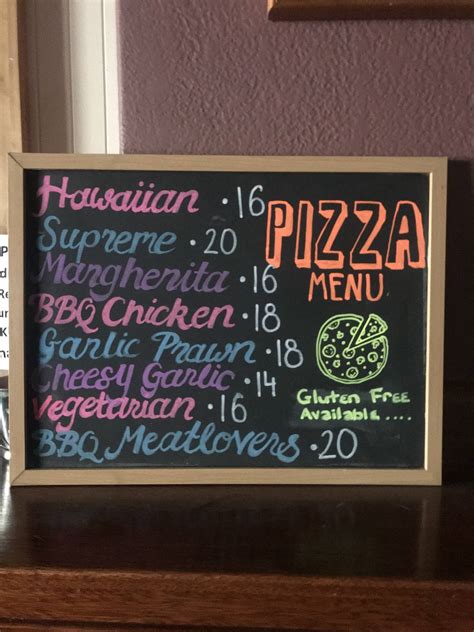 Hawaiian · 16
Supreme · 20
Marghenita · 16
BBQ Chicken · 18
Garlic Prawn · 18
Cheesy Garlic · 14
Vegetarian · 16
BBQ Meatlovers · 20
PIZZA
MENU
Gluten Free
Available ....